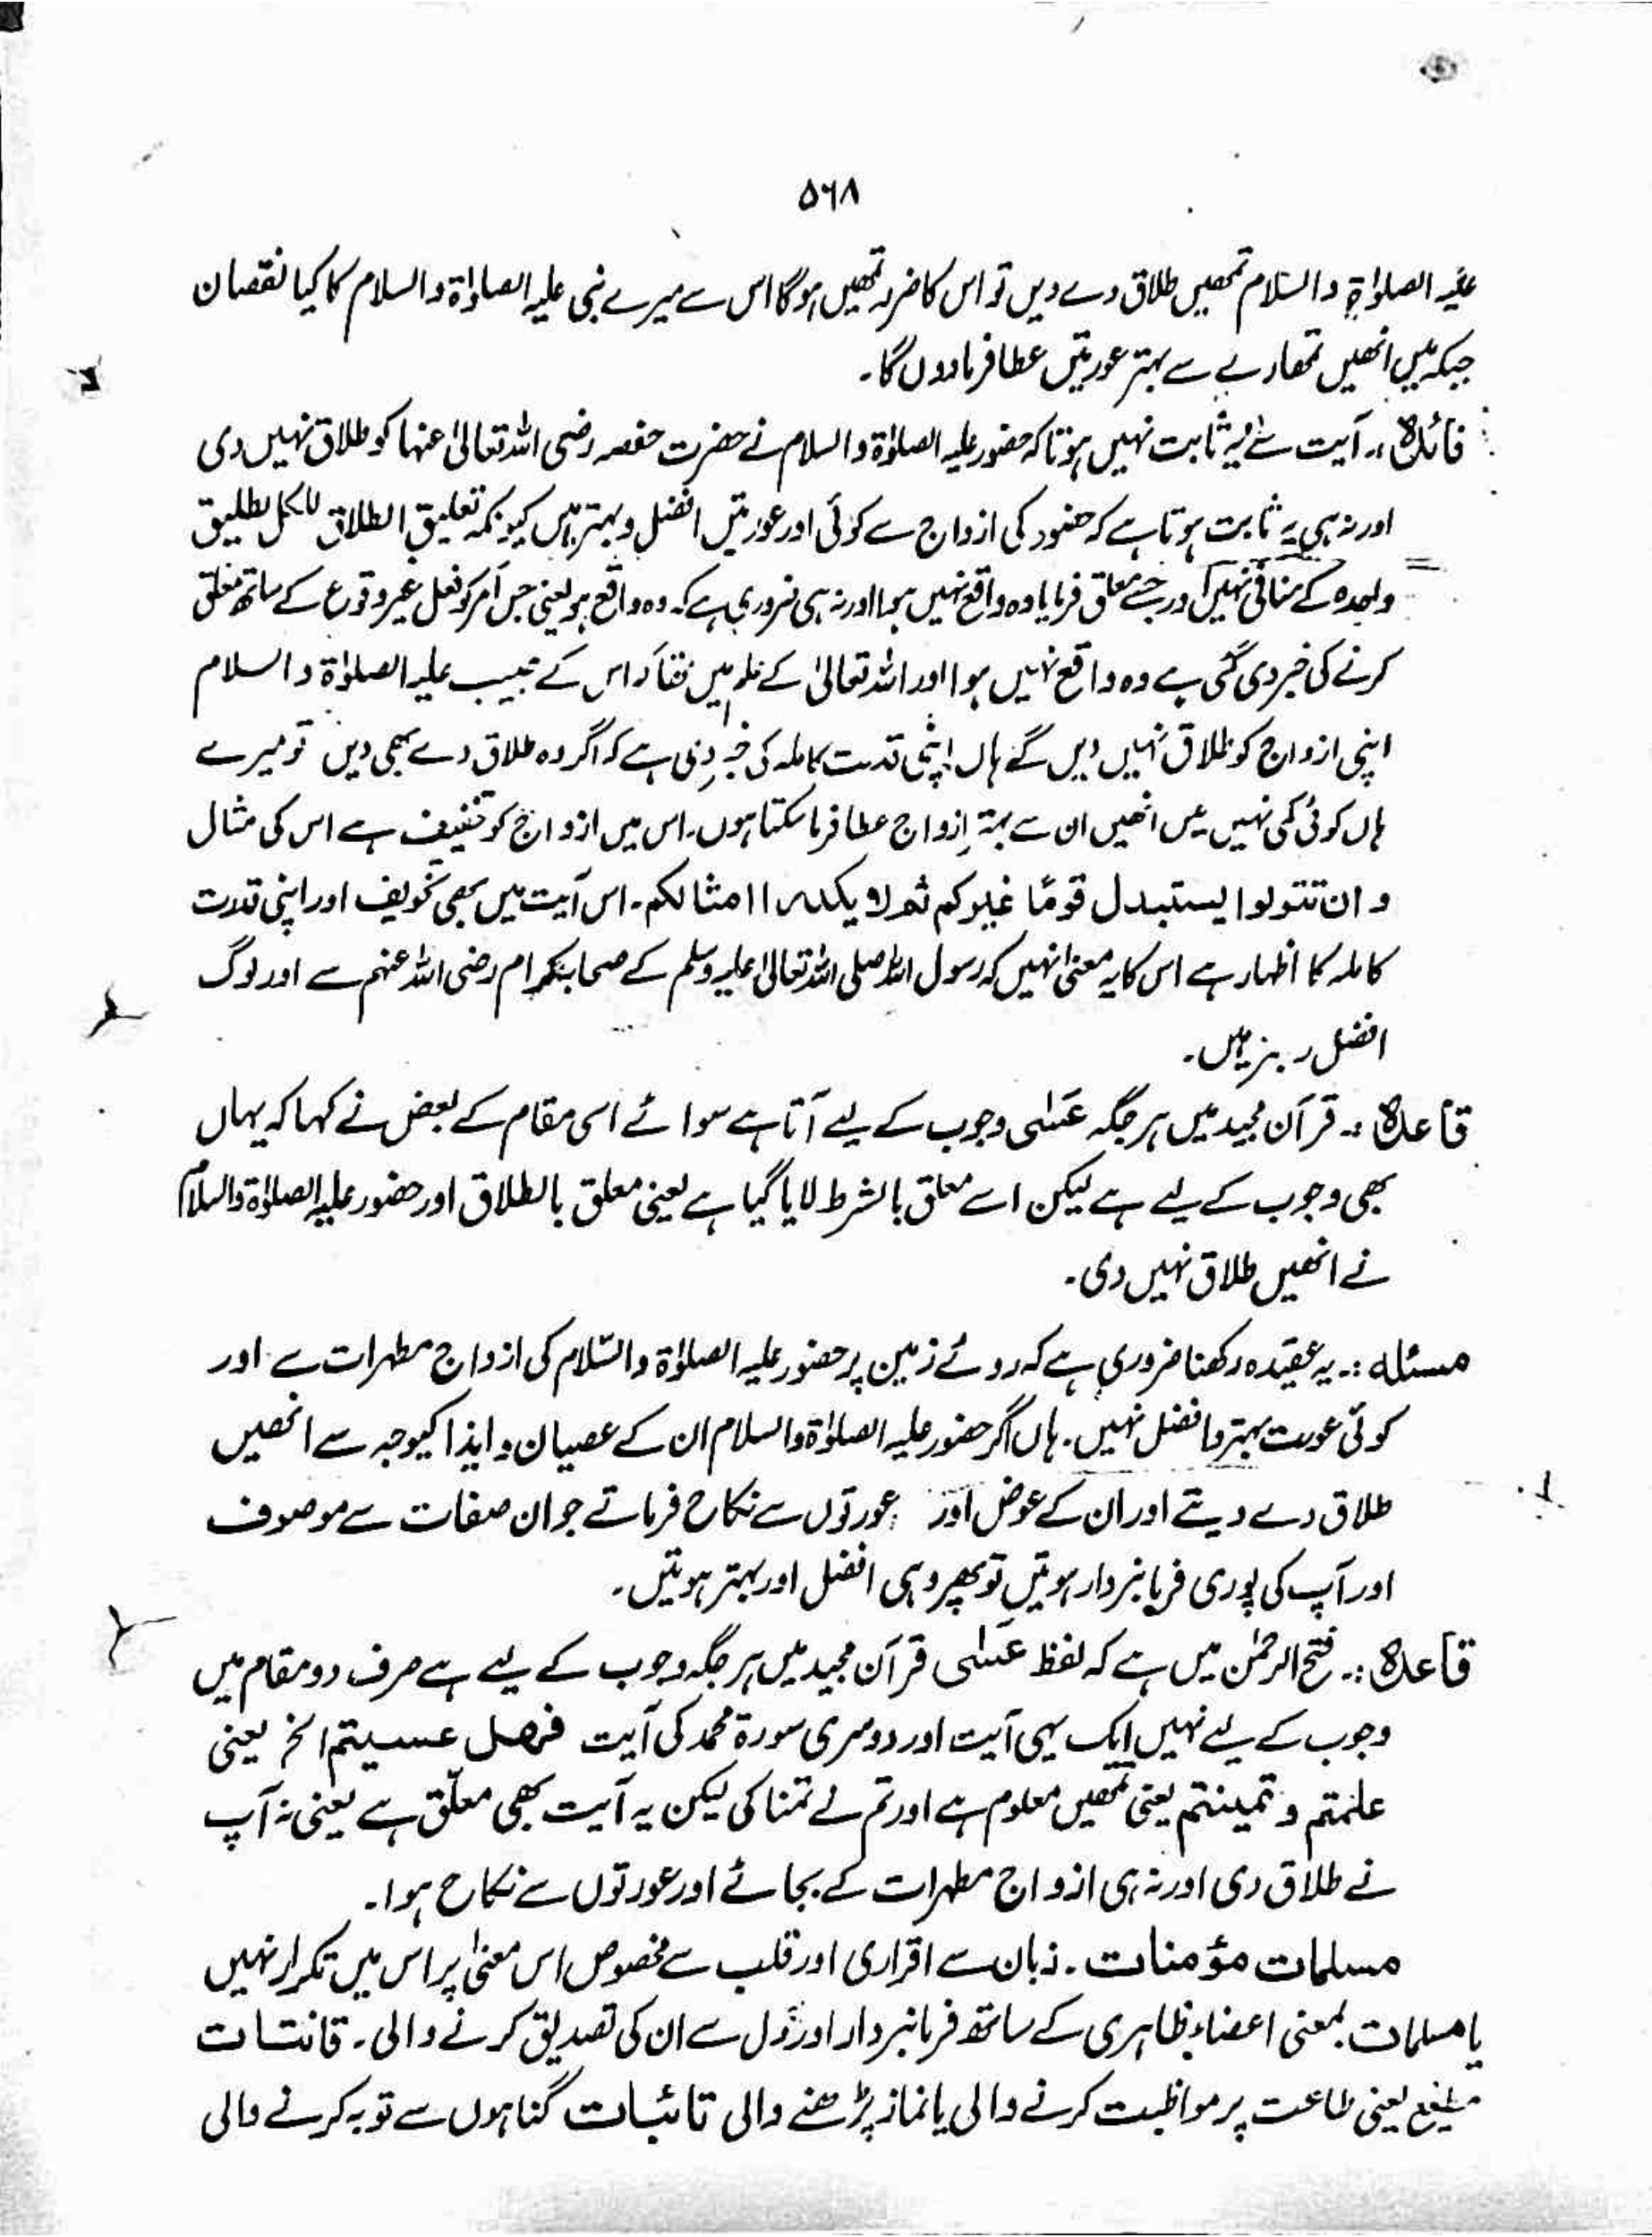 ۵۶۸
علیہ الصلوٰۃ والسّلام تمھیں طلاق دے دیں تو اس کا ضرر تمھیں ہوگا اس سے میرے نبی علیہ الصلوٰۃ والسلام کا کیا نقصان
جبکہ میں انھیں تمھارے سے بہتر عورتیں عطا فرما دوں گا۔
فائدہ :۔ آیت سے یہ ثابت نہیں ہوتا کہ حضور علیہ الصلوٰۃ والسلام نے حضرت حفصہ رضی اللہ تعالیٰ عنہا کو طلاق نہیں دی
اور نہ ہی یہ ثابت ہوتا ہے کہ حضور کی ازواج سے کوئی اور عورتیں افضل و بہتر ہیں کیونکہ تعلیق الطلاق للکل تطلیق
واحدہ کے منافی نہیں اور جسے معلق فرمایا وہ واقع نہیں ہوا اور نہ ہی ضروری ہے کہ وہ واقع ہو یعنی جس امر کو فعل غیر وقوع کے ساتھ معلق
کرنے کی خبر دی گئی ہے وہ واقع نہیں ہوا اور اللہ تعالیٰ کے علم میں تھا کہ اس کے حبیب علیہ الصلوٰۃ والسلام
اپنی ازواج کو طلاق نہیں دیں گے ہاں اپنی قدرت کاملہ کی خبر دی ہے کہ اگر وہ طلاق دے بھی دیں تو میرے
ہاں کوئی کمی نہیں میں انھیں ان سے بہتر ازواج عطا فرما سکتا ہوں۔ اس میں ازواج کو تخفیف ہے اس کی مثال
و ان تتولوا یستبدل قومًا غیرکم ثم لا یکونوا امثالکم۔ اس آیت میں بھی تخویف اور اپنی قدرت
کاملہ کا اظہار ہے اس کا یہ معنیٰ نہیں کہ رسول اللہ صلی اللہ تعالیٰ علیہ وسلم کے صحابہ کرام رضی اللہ عنہم سے اور لوگ
افضل ہیں۔
قاعدہ :۔ قرآن مجید میں ہر جگہ عَسٰی وجوب کے لیے آتا ہے سوائے اسی مقام کے بعض نے کہا کہ یہاں
بھی وجوب کے لیے ہے لیکن اسے معلق بالشرط لایا گیا ہے یعنی معلق بالطلاق اور حضور علیہ الصلوٰۃ والسلام
نے انھیں طلاق نہیں دی۔
مسئلہ :۔ یہ عقیدہ رکھنا ضروری ہے کہ روئے زمین پر حضور علیہ الصلوٰۃ والسّلام کی ازواج مطہرات سے اور
کوئی عورت بہتر و افضل نہیں۔ ہاں اگر حضور علیہ الصلوٰۃ والسلام ان کے عصیان و ایذا کیوجہ سے انھیں
طلاق دے دیتے اور ان کے عوض اور عورتوں سے نکاح فرماتے جو ان صفات سے موصوف
اور آپ کی پوری فرمانبردار ہوتیں تو پھر وہی افضل اور بہتر ہوتیں۔
قاعدہ :۔ فتح الرحمٰن میں ہے کہ لفظ عَسٰی قرآن مجید میں ہر جگہ وجوب کے لیے ہے صرف دو مقام میں
وجوب کے لیے نہیں ایک یہی آیت اور دوسری سورۃ محمد کی آیت فہل عسیتم الخ یعنی
علمتم و تمینتم یعنی تمھیں معلوم ہے اور تم نے تمنا کی لیکن یہ آیت بھی معلّق ہے یعنی نہ آپ
نے طلاق دی اور نہ ہی ازواج مطہرات کے بجائے اور عورتوں سے نکاح ہوا۔
مسلمات مؤمنات۔ زبان سے اقراری اور قلب سے مخصوص اس معنیٰ پر اس میں تکرار نہیں
یا مسلمات بمعنی اعضاء ظاہری کے ساتھ فرمانبردار اور دل سے ان کی تصدیق کرنے والی۔ قانتات
مطیع یعنی طاعت پر مواظبت کرنے والی یا نماز پڑھنے والی تائبات گناہوں سے توبہ کرنے والی